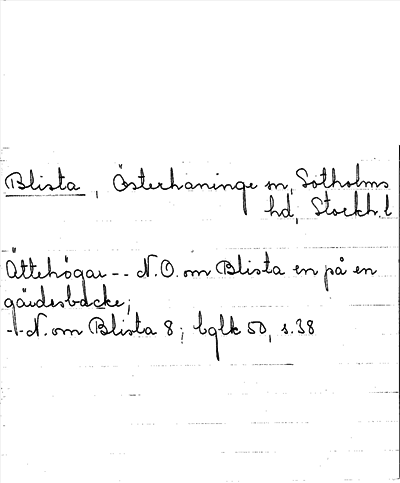 Blista, Österhaninge sn, Sotholms
hd, Stockh. l
Ättehögar -- N.O. om Blista en på en
gärdesbacke;
-- N. om Blista 8; bglk 50, s. 38